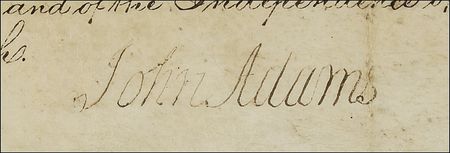 and of the Independence o
John Adams